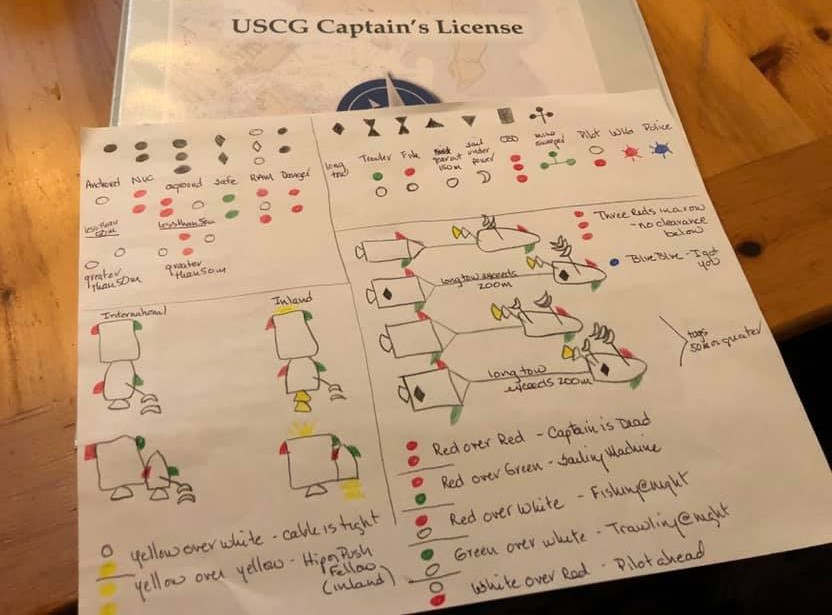 USCG Captain's License
Anchored NUC aground Safe RAM Danger
long tow Trawler Fish 150m sail under power CBD mine Pilot WIG Police
less than 50m less than 50m
greater than 50m greater than 50m
Three Reds in a row
- no clearance below
Blue Blue - I got you
long tow exceeds 200m
International Inland
tugs 50m or greater
long tow exceeds 200m
Red over Red - Captain is Dead
Red over Green - Sailing Machine
Red over White - Fishing@night
Green over white - Trawling@night
White over Red - Pilot ahead
yellow over white - cable is tight
yellow over yellow - Hip or Push Fellow (inland)